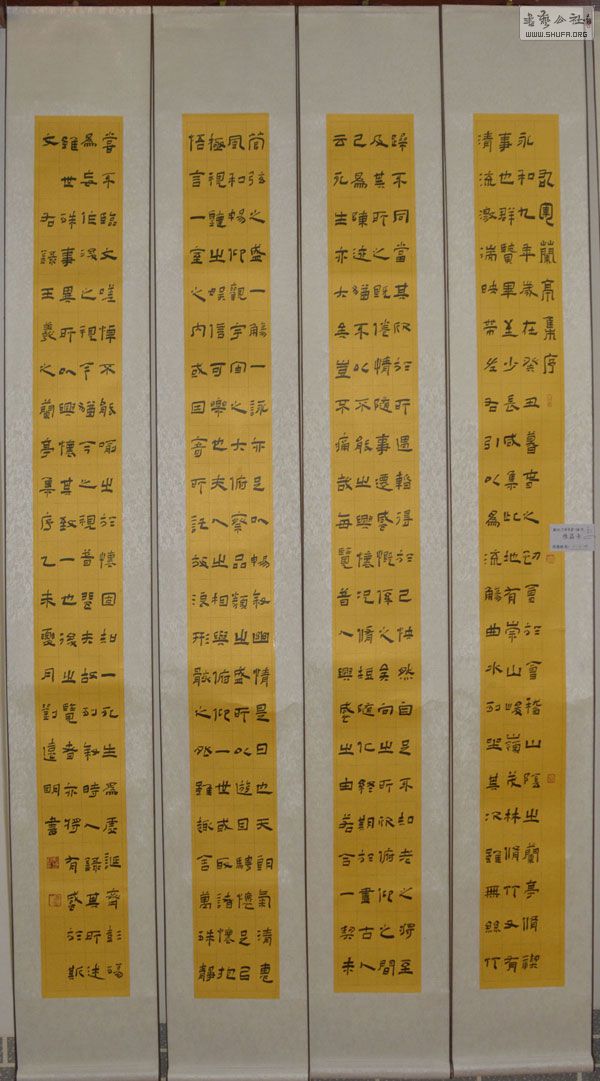 書藝公社
WWW.SHUFA.ORG
蘭亭集序
永和九年歲在癸丑暮春之初會於會稽山陰之蘭亭脩禊
事也群賢畢至少長咸集此地有崇山峻嶺茂林脩竹又有
清流激湍映帶左右引以為流觴曲水列坐其次雖無絲竹
躁不同當其欣於所遇暫得於己怏然自足不知老之將至
及其所之既倦情隨事遷感慨係之矣向之所欣俯仰之間
已為陳迹猶不以不能之興懷況脩短隨化終期於盡古人
云死生亦大矣豈不痛哉每覽昔人興感之由若合一契未
管弦之盛一觴一詠亦足以暢敘幽情是日也天朗氣清惠
風和暢仰觀宇宙之大俯察品類之盛所以遊目騁懷足以
極視聽之娛信可樂也夫人之相與俯仰一世或取諸懷抱
悟言一室之內或因寄所託放浪形骸之外雖趣舍萬殊靜
嘗不臨文嗟悼不能喻之於懷固知一死生為虛誕齊彭殤
為妄作後之視今猶今之視昔悲夫故列敘時人錄其所述
雖世殊事異所以興懷其致一也後之覽者亦將有感於斯
文右錄王羲之蘭亭集序乙未夏月劉遠明書
作品卡